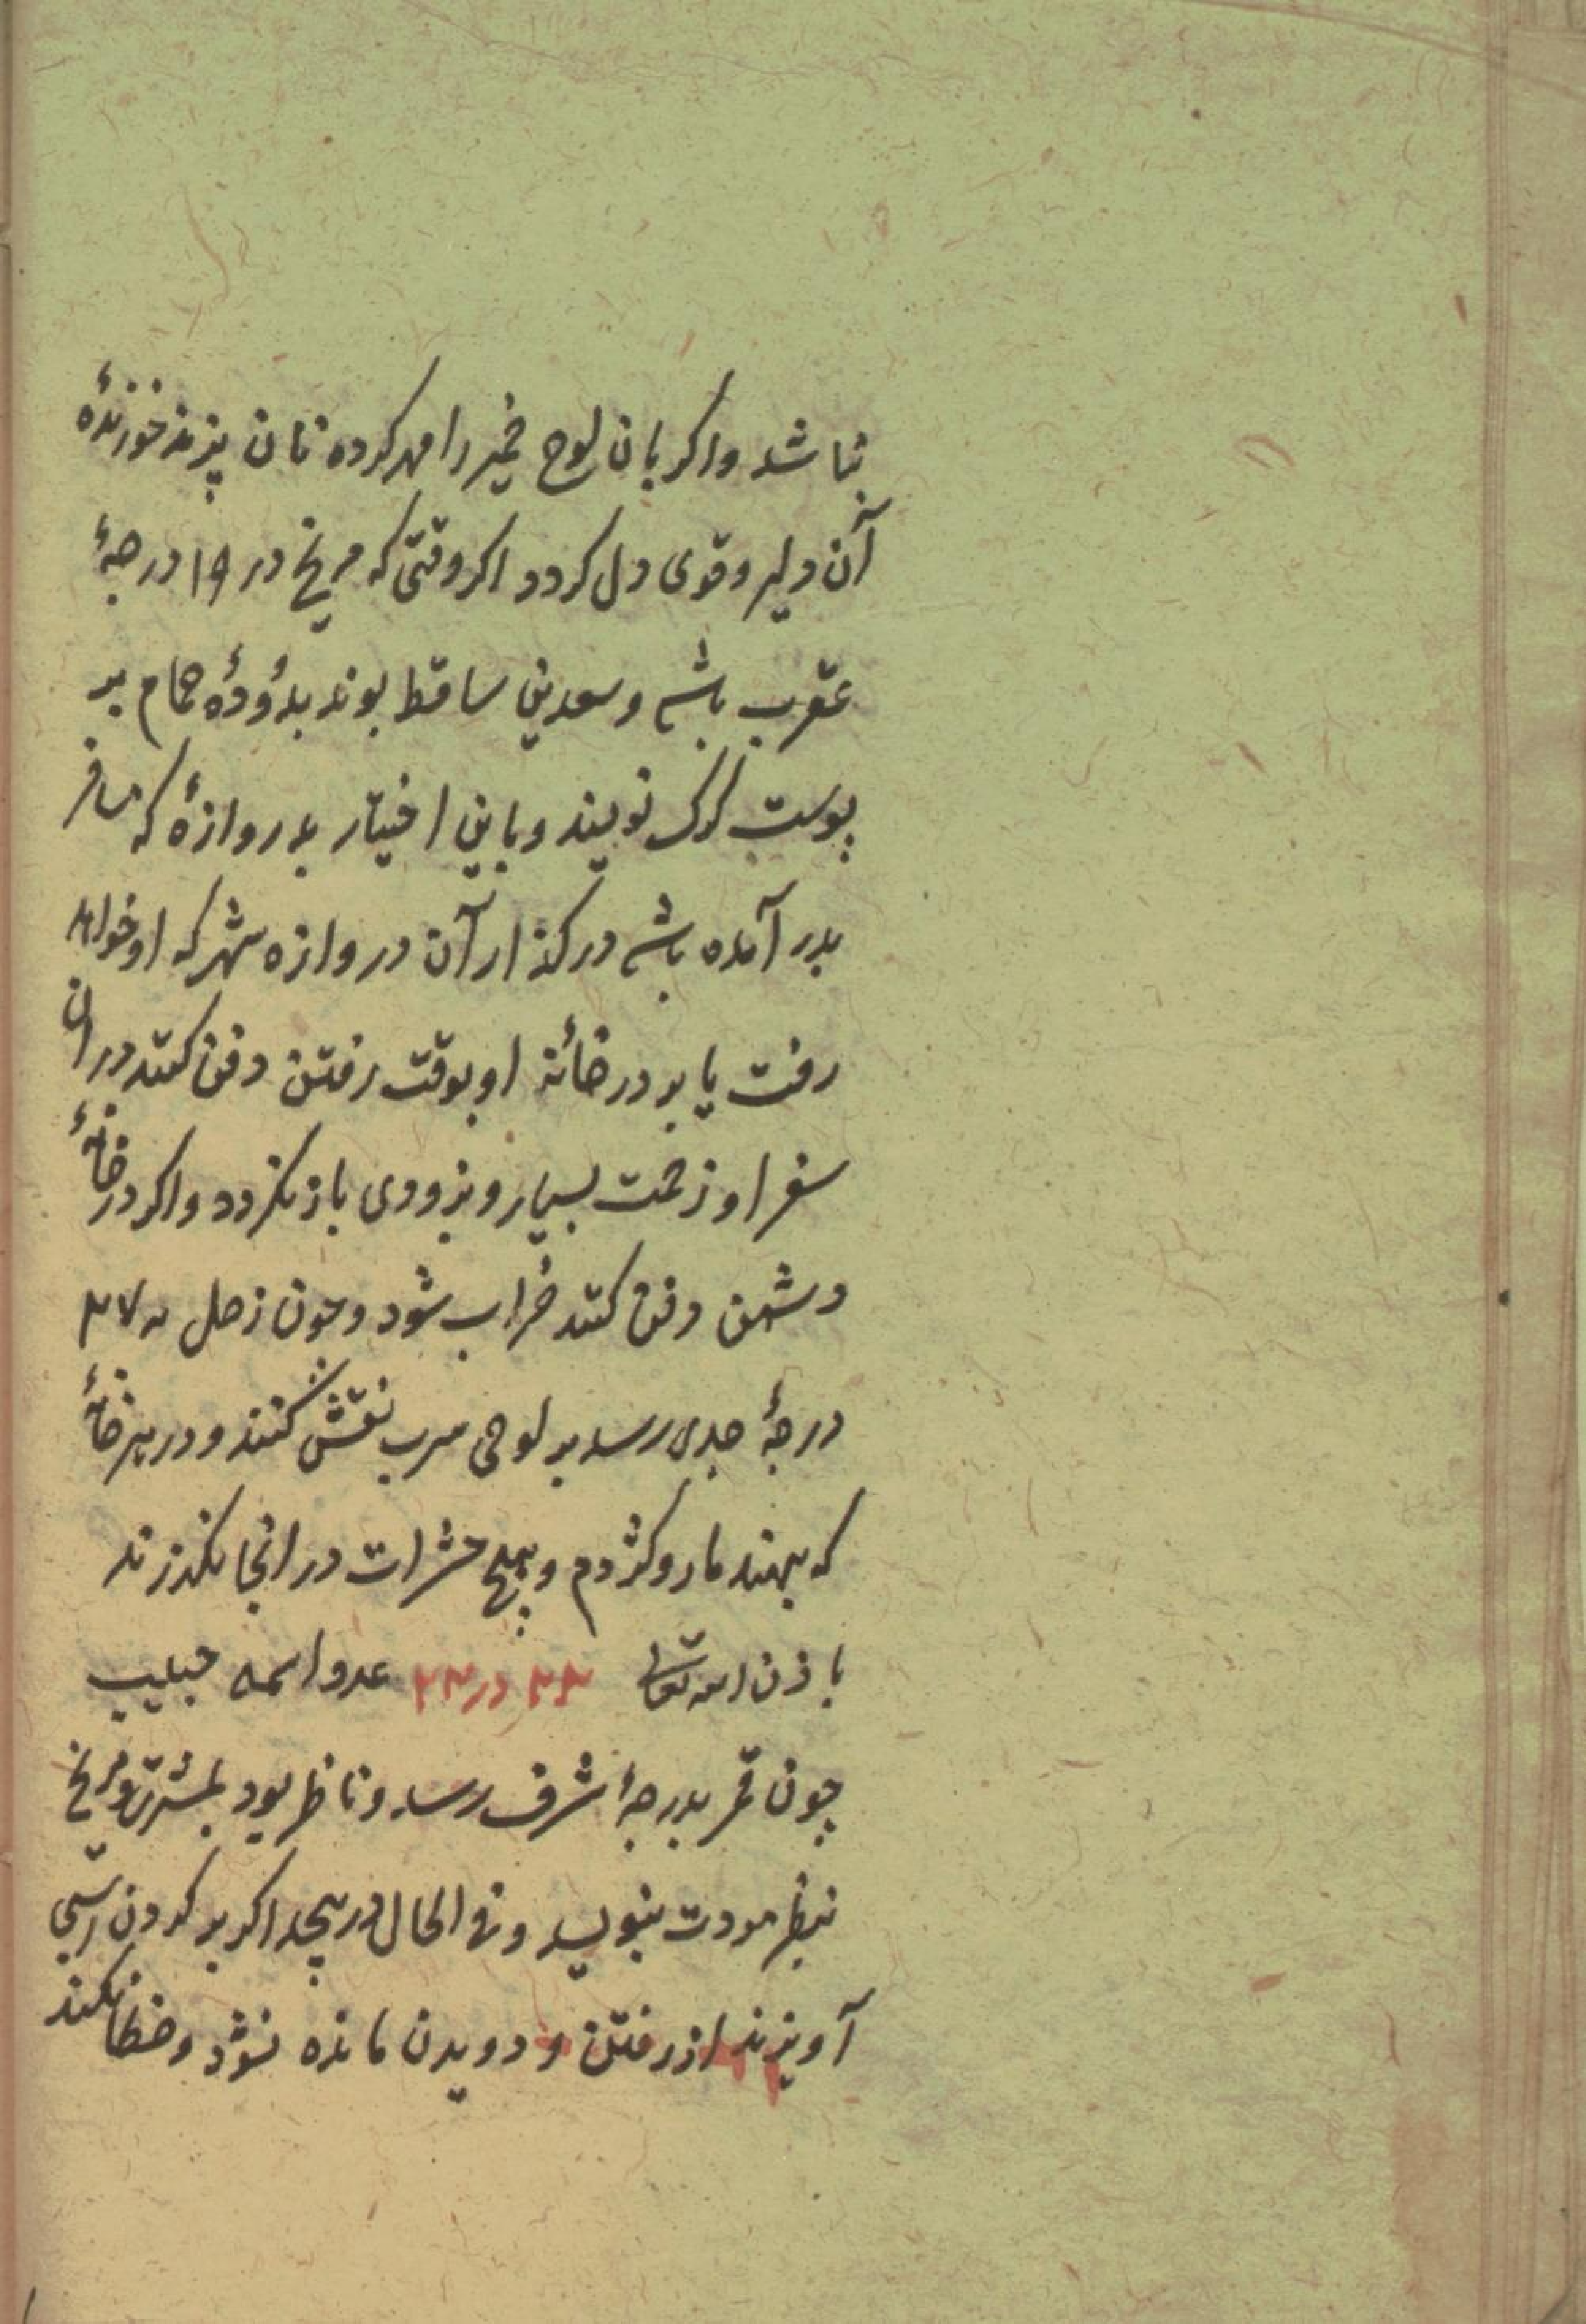 نباشد واکر بان لوح خمیر را مهر کرده نان پزند خورندهٔ
آن دلیر و قوی دل کردد اکر وقتی که مریخ در ۱۹ درجهٔ
عقرب باشد و سعدین ساقط بوند بدودهٔ حمام بر
پوست کرک نویسد و باین اختیار بدروازهٔ که مسافر
بدر آمده باشد در کذار آن دروازه شهر که او خواهد
رفت یا بر در خانهٔ او بوقت رفتن دفن کنند در ان
سفر او زحمت بسیار و بزودی باز نکردد واکر در خانهٔ
دشمن دفن کنند خراب شود و چون زحل به ۲۷
درجهٔ جدی رسد بر لوحی سرب نقش کنند و در هر خانهٔ
که بنهند مار و کژدم و هیچ حشرات در انجا نکذرند
باذن الله تعالی ۲۲ در ۲۲ عدد اسمه حبیب
چون قمر بدرجهٔ شرف رسد و ناظر بود بمشتری و مریخ
بنظر مودت بنویسد و فی الحال در پیچد اکر بر کردن اسبی
آویزند از رفتن و دویدن مانده نشود و خطا نکند